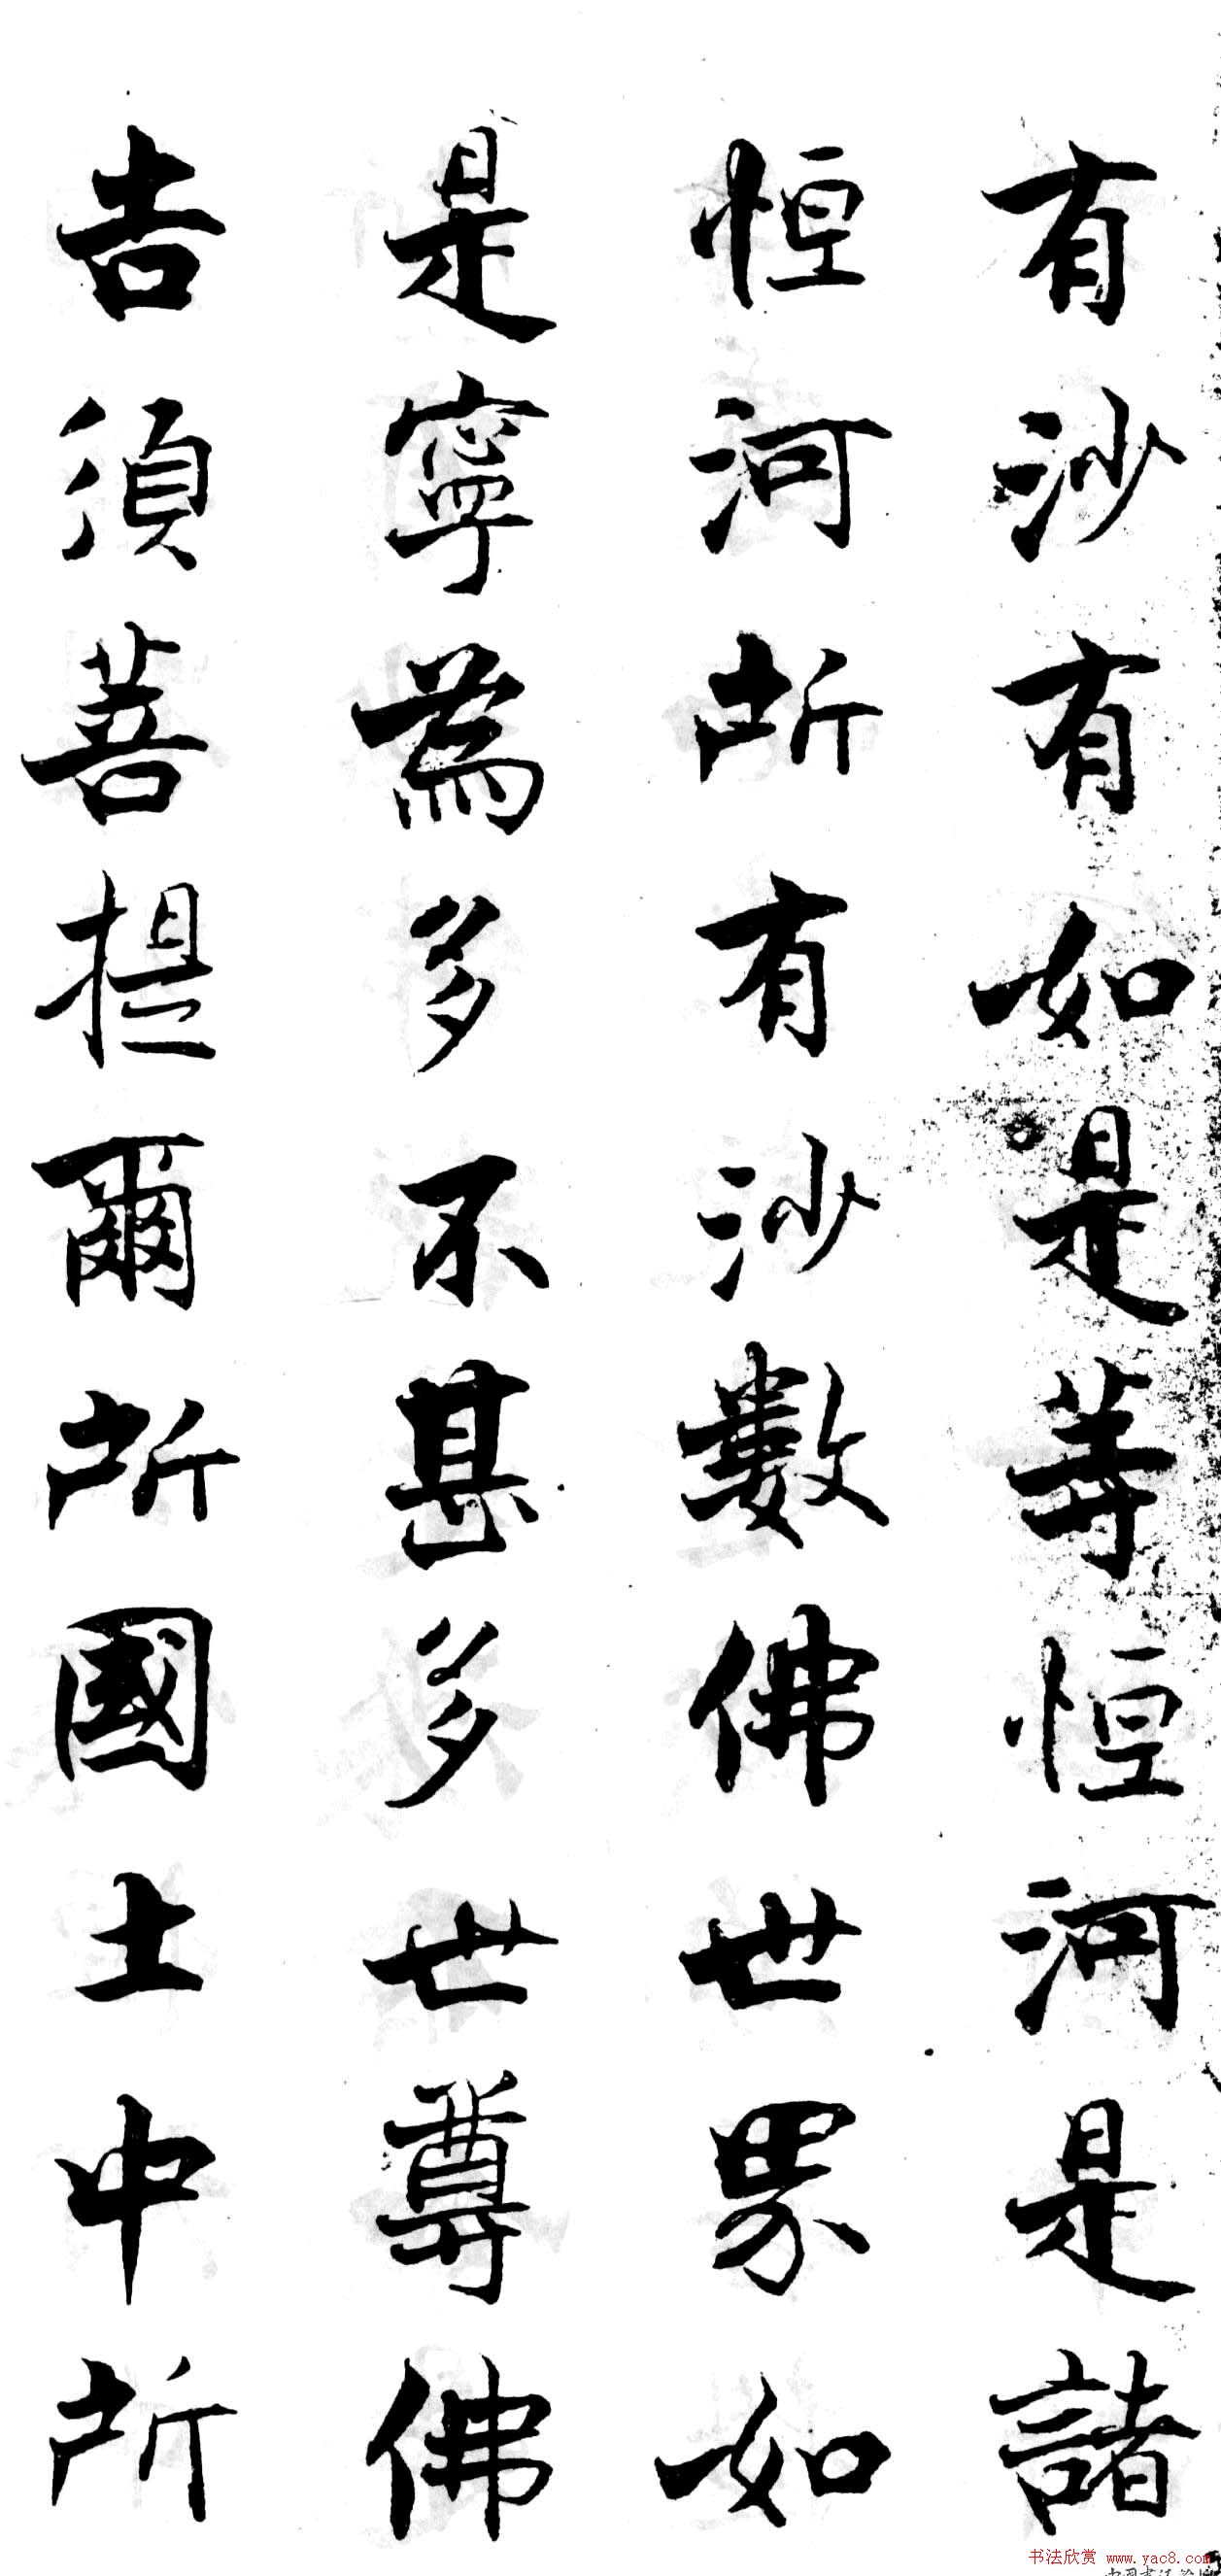 有沙有如是等恒河是諸
恒河所有沙數佛世界如
是寧為多不甚多世尊佛
告須菩提爾所國土中所
书法欣赏 www.yac8.com